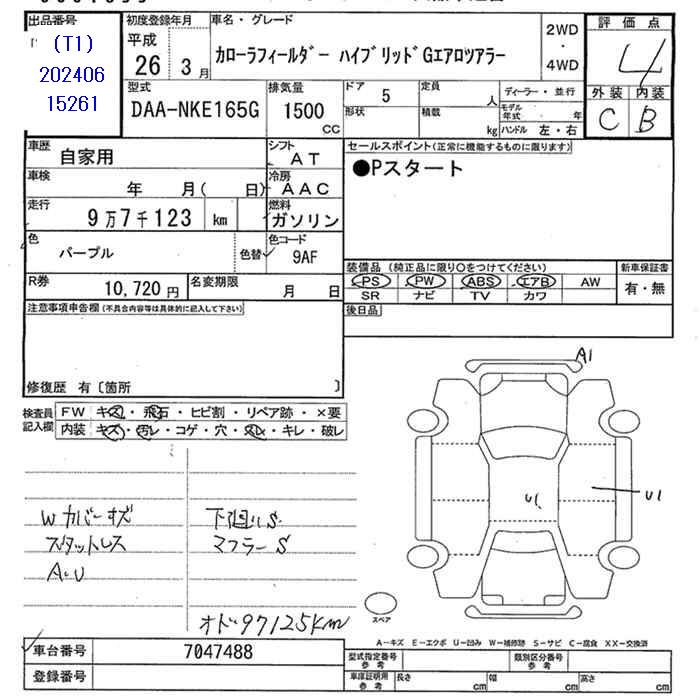 出品番号
(T1)
202406
15261
初度登録年月
平成
26 3月
車名・グレード
カローラフィールダー ハイブリッドGエアロツアラー
2WD
・
4WD
評価点
4
外装 内装
C B
型式
DAA-NKE165G
排気量
1500
CC
ドア 5
形状
定員 人
積載 kg
ディーラー・並行
モデル年式 年
ハンドル 左・右
車歴 自家用
シフト AT
車検 年 月( 日)
冷房 AAC
走行 9万7千123 km
燃料 ガソリン
色 パープル
色替
色コード 9AF
R券 10,720円
名変期限 月 日
セールスポイント(正常に機能するものに限ります)
●Pスタート
装備品(純正品に限り○をつけてください)
PS PW ABS エアB AW
SR ナビ TV カワ
新車保証書
有・無
後日品
注意事項申告欄(不具合内容等は具体的に記入して下さい)
修復歴 有〔箇所 〕
検査員記入欄
FW キズ・飛石・ヒビ割・リペア跡・×要
内装 キズ・汚レ・コゲ・穴・スレ・キレ・破レ
Wカバーキズ
スタットレス
A・U
下廻りS
マフラーS
オド97125km
A1
U1
U1
スペア
A-キズ E-エクボ U-凹み W-補修跡 S-サビ C-腐食 XX-交換済
車台番号 7047488
登録番号
型式指定番号 参考
類別区分番号 参考
車庫証明用 参考
長さ cm
幅 cm
高さ cm